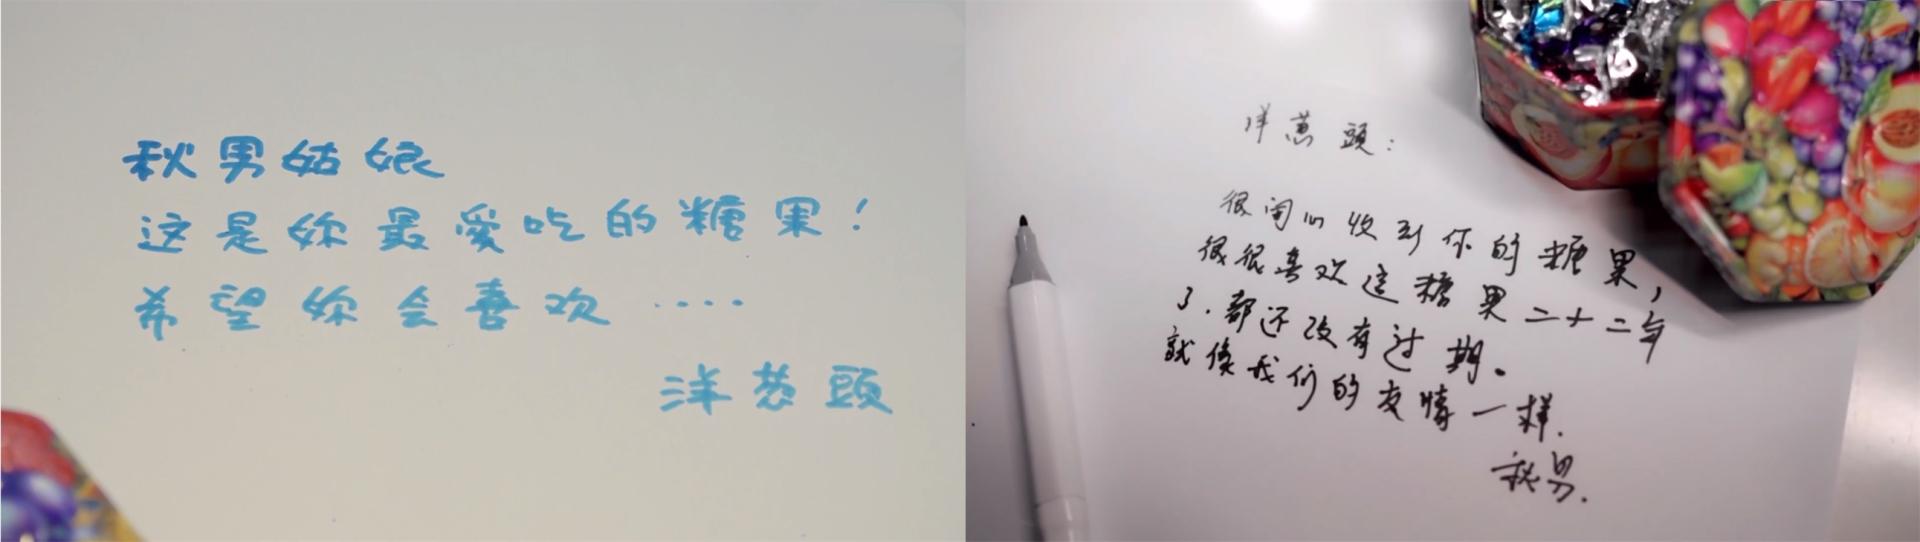 秋男姑娘
这是妳最爱吃的糖果！
希望妳会喜欢····
洋葱頭
洋葱頭：
很闹心收到你的糖果，
很很喜欢这糖果二十二年
了.都还没有过期。
就像我们的友情一样.
秋男.